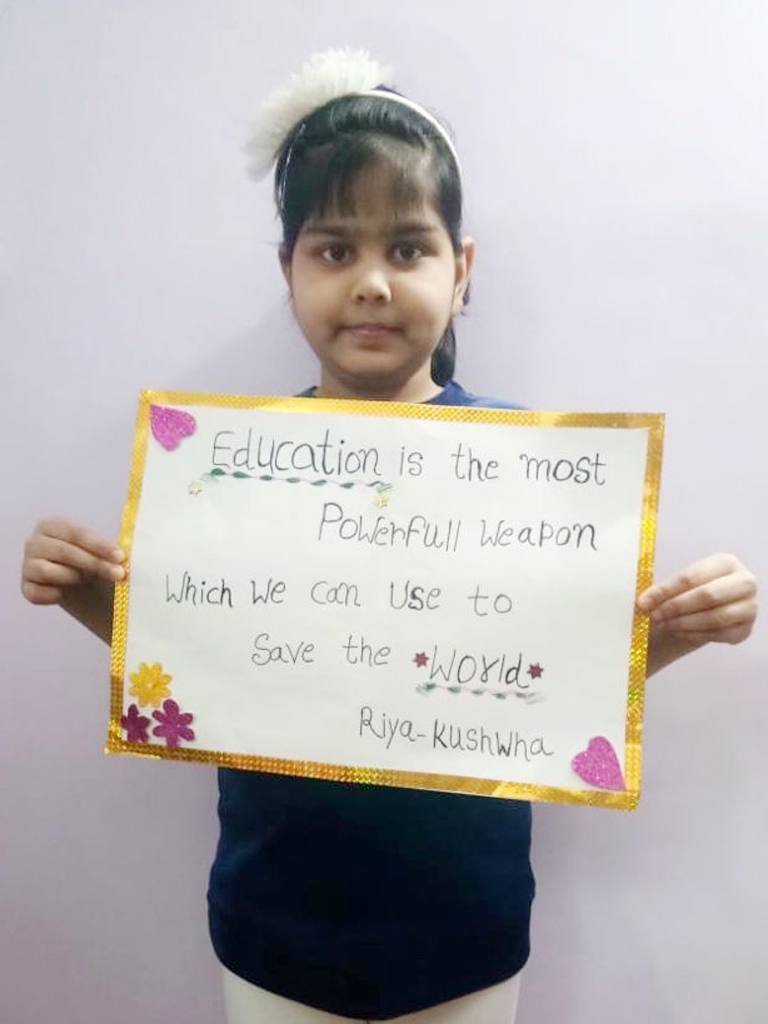 Education is the most
Powerfull Weapon
Which We can Use to
Save the World
Riya-Kushwha